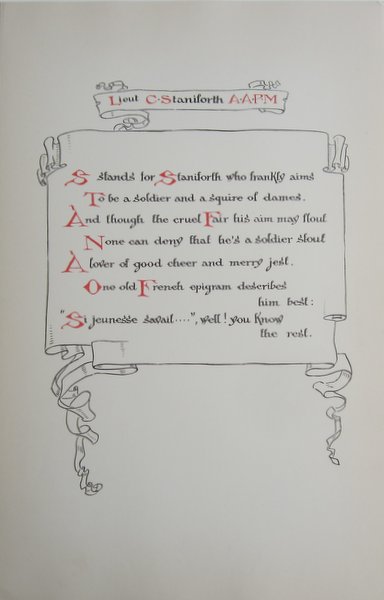 Lieut C. Staniforth A.A.P.M
S stands for Staniforth who frankly aims
To be a soldier and a squire of dames.
And though the cruel Fair his aim may flout
None can deny that he's a soldier stout
A lover of good cheer and merry jest.
One old French epigram describes
him best:
"Si jeunesse savait....", well! you know
the rest.